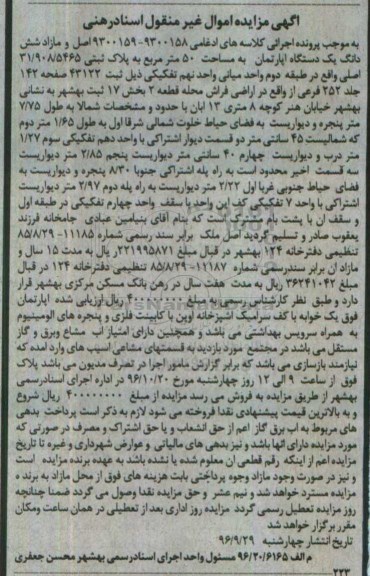 آگهی مزایده اموال غیر منقول اسناد رهنی
به موجب پرونده اجرائی کلاسه های ادغامی ۹۳۰۰۱۵۸-۹۳۰۰۱۵۹ اصل و مازاد شش
دانگ یک دستگاه اپارتمان به مساحت ۵۰ متر مربع به پلاک ثبتی ۳۱/۹۰۸/۵۴۶۵
اصلی واقع در طبقه دوم واحد میانی واحد نهم تفکیکی ذیل ثبت ۴۳۱۲۳ صفحه ۱۴۲
جلد ۲۵۲ فرعی از واقع در اراضی فراش محله قطعه ۲ بخش ۱۷ ثبت بهشهر به نشانی
بهشهر خیابان هنر کوچه ۸ متری ۱۳ ابان با حدود و مشخصات شمالا به طول ۷/۷۵
متر پنجره و دیواریست به فضای حیاط خلوت شمالی شرقا اول به طول ۱/۶۵ متر دوم
که شمالیست ۴۵ سانتی متر دو قسمت دیوار اشتراکی با واحد دهم تفکیکی سوم ۱/۲۷
متر درب و دیواریست چهارم ۴۰ سانتی متر دیواریست پنجم ۲/۸۵ متر دیواریست
سه قسمت اخیر محدود است به راه پله اشتراکی جنوبا ۸/۳۰ پنجره و دیواریست به
فضای حیاط جنوبی غربا اول ۲/۲۲ متر دیواریست به راه پله دوم ۲/۹۷ متر دیواریست
اشتراکی با واحد ۷ تفکیکی کف این واحد با سقف واحد چهارم تفکیکی در طبقه اول
و سقف ان با پشت بام مشترک است که بنام آقای بنیامین عبادی جامخانه فرزند
یعقوب صادر و تسلیم گردید اصل ملک برابر سند رسمی شماره ۱۱۱۸۵-۸۵/۸/۲۹
تنظیمی دفترخانه ۱۲۴ بهشهر در قبال مبلغ ۲۲۱۹۹۵۸۷۱ ریال به مدت ۱۵ سال و
مازاد ان برابر سندرسمی شماره ۱۲۱۸۷-۸۵/۸/۲۹ تنظیمی دفترخانه ۱۲۴ در قبال
مبلغ ۳۶۲۴۱۰۴۲ ریال به مدت هفت سال در رهن بانک مسکن مرکزی بهشهر قرار
دارد و طبق نظر کارشناس رسمی به مبلغ ۴۰۰۰۰۰۰۰۰ ریال ارزیابی شده اپارتمان
فوق یک خوابه با کف سرامیک اشپزخانه اوپن با کابینت فلزی و پنجره های الومینیوم
به همراه سرویس بهداشتی می باشد و همچنین دارای امتیاز اب مشاع وبرق و گاز
مستقل می باشد در مجتمع مورد بازدید به قسمتهای مشاعی اسیب های وارد امده که
نیازمند بازسازی می باشد که برابر گزارش مامور اجرا در تصرف مدیون می باشد پلاک
فوق از ساعت ۹ الی ۱۲ روز چهارشنبه مورخ ۹۶/۱۰/۲۰ در اداره اجرای اسنادرسمی
بهشهر از طریق مزایده به فروش می رسد مزایده از مبلغ ۴۰۰۰۰۰۰۰۰ ریال شروع
و به بالاترین قیمت پیشنهادی نقدا فروخته می شود لازم به ذکر است پرداخت بدهی
های مربوط به اب برق گاز اعم از حق انشعاب و یا حق اشتراک و مصرف در صورتی که
مورد مزایده دارای انها باشد و نیز بدهی های مالیاتی و عوارض شهرداری و غیره تا تاریخ
مزایده اعم از اینکه رقم قطعی ان معلوم شده یا نشده باشد به عهده برنده مزایده است
و نیز در صورت وجود مازاد وجوه پرداختی بابت هزینه های فوق از محل مازاد به برنده
مزایده مسترد خواهد شد و نیم عشر و حق مزایده نقدا وصول می گردد ضمنا چنانچه
روز مزایده تعطیل رسمی گردد مزایده روز اداری بعد از تعطیلی در همان ساعت ومکان
مقرر برگزار خواهد شد
تاریخ انتشار چهارشنبه ۹۶/۹/۲۹
م الف ۹۶/۲۰/۶۱۶۵ مسئول واحد اجرای اسنادرسمی بهشهر محسن جعفری
۲۲۳